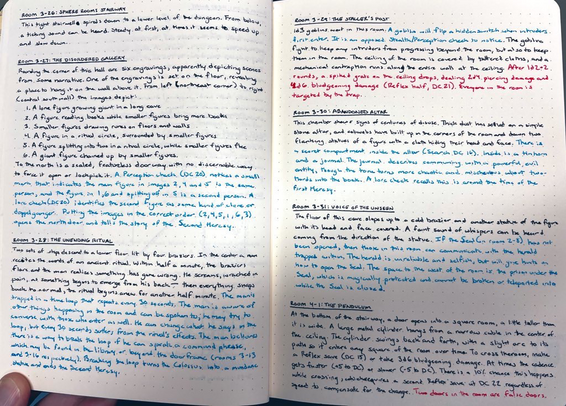 ROOM 3-26: SPHERE ROOMS STAIRWAY
This tight stairwell spirals down to a lower level of the dungeon. From below,
a ticking sound can be heard. Steady, at first, at times it seems to speed up
and slow down.
ROOM 3-27: THE DISORDERED GALLERY
Around the corner of this hall are six engravings, apparently depicting scenes
from some narrative. One of the engravings is set on the floor, revealing
a place to hang it on the wall above it. From left (northeast corner) to right
(central south wall) the images depict:
1. A lone figure growing giant in a long cave
2. A figure reading books while smaller figures bring more books
3. Smaller figures drawing runes on floors and walls
4. A figure in a ritual circle, surrounded by smaller figures
5. A figure splitting into two in a ritual circle, while smaller figures flee
6. A giant figure chased up by smaller figures
To the north is a sealed, featureless doorway with no discernable way
to force it open or lockpick it. A Perception check (DC 20) notices a small
mark that indicates the main figure in images 2, 4 and 5 is the same
person, and the figure in 1, 6 and splitting off in 5 is a second person. A
lore check (DC 20) identifies the second figure as some kind of
doppelganger. Putting the images in the correct order (2, 4, 5, 1, 6, 3)
opens the north door, and tells the story of the Second Heresy.
ROOM 3-28: THE UNENDING RITUAL
Two sets of steps descend to a lower floor, lit by four braziers. In the center a man
recites the words of an ancient ritual. Within half a minute, the braziers
flare and the man realizes something has gone wrong. He screams, wretched in
pain, as something begins to emerge from his back — then everything snaps
back to normal, the ritual begins anew for another half minute. The man is
trapped in a time loop that repeats every 30 seconds. The man is aware of
other things happening in the room and can be spoken to; he may try to
converse with those who enter as well. He can change what he says in the
loop, but every 30 seconds suffers from the ritual's effects. The man believes
there is a way to break the loop if he can speak a command phrase,
which may be found in the library or beyond the doorframe (rooms 3-13
and 3-16 respectively). Breaking the loop turns the Colossus into a mundane
statue and ends the Second Heresy.
ROOM 3-29: THE STALLER'S POST
1d3 goblins wait in this room. A goblin will flip a hidden switch when intruders
first enter. It is an opposed Stealth/Perception check to notice. The goblins
fight to keep any intruders from progressing beyond the room, but also to keep
them in the room. The ceiling of the room is covered by tattered cloths, and a
mechanical contraption runs along the entire wall at the ceiling. After 1d2+2
rounds, a spiked grate on the ceiling drops, dealing 2d4 piercing damage and
4d6 bludgeoning damage (Reflex half, DC 21). Everyone in the room is
targeted by the trap.
ROOM 3-30: ABANDONED ALTAR
This chamber shows signs of centuries of disuse. Thick dust has settled on a simple
stone altar, and cobwebs have built up in the corners of the room and down two
flanking statues of a figure with a cloth hiding their head and face. There is
a secret compartment inside the altar (Search DC 15). Inside is a tinderbox
and a journal. The journal describes communing with a powerful, evil
entity, though the tone turns more chaotic and mischievous about two-
thirds into the book. A lore check recalls this is around the time of the
first Heresy.
ROOM 3-31: VOICE OF THE UNSEEN
The floor of this cave slopes up to a cold brazier and another statue of the figure
with its head and face covered. A faint sound of whispers can be heard
coming from the direction of the statue. If the Seal (in room 2-8) has not
been opened, then those in the room can communicate with the herald
trapped within. The herald is unreliable and selfish, but will give hints on
how to open the Seal. The space to the west of the room is the prison under the
Seal, which is magically protected and cannot be broken or teleported into
while the Seal is closed.
ROOM 4-1: THE PENDULUM
At the bottom of the stairway, a door opens into a square room, a little taller than
it is wide. A large metal cylinder hangs from a narrow cable in the center of
the ceiling. The cylinder swings back and forth, with a slight arc to its
path so it enters every square of the room over time. To cross the room, make
a Reflex save (DC 18) or take 3d6 bludgeoning damage. At times the cadence
gets faster (+5 to DC) or slower (-5 to DC). There is a 10% chance this happens
while crossing, which requires a second Reflex save at DC 22 regardless of
speed to compensate for the change. Two doors in the room are false doors.